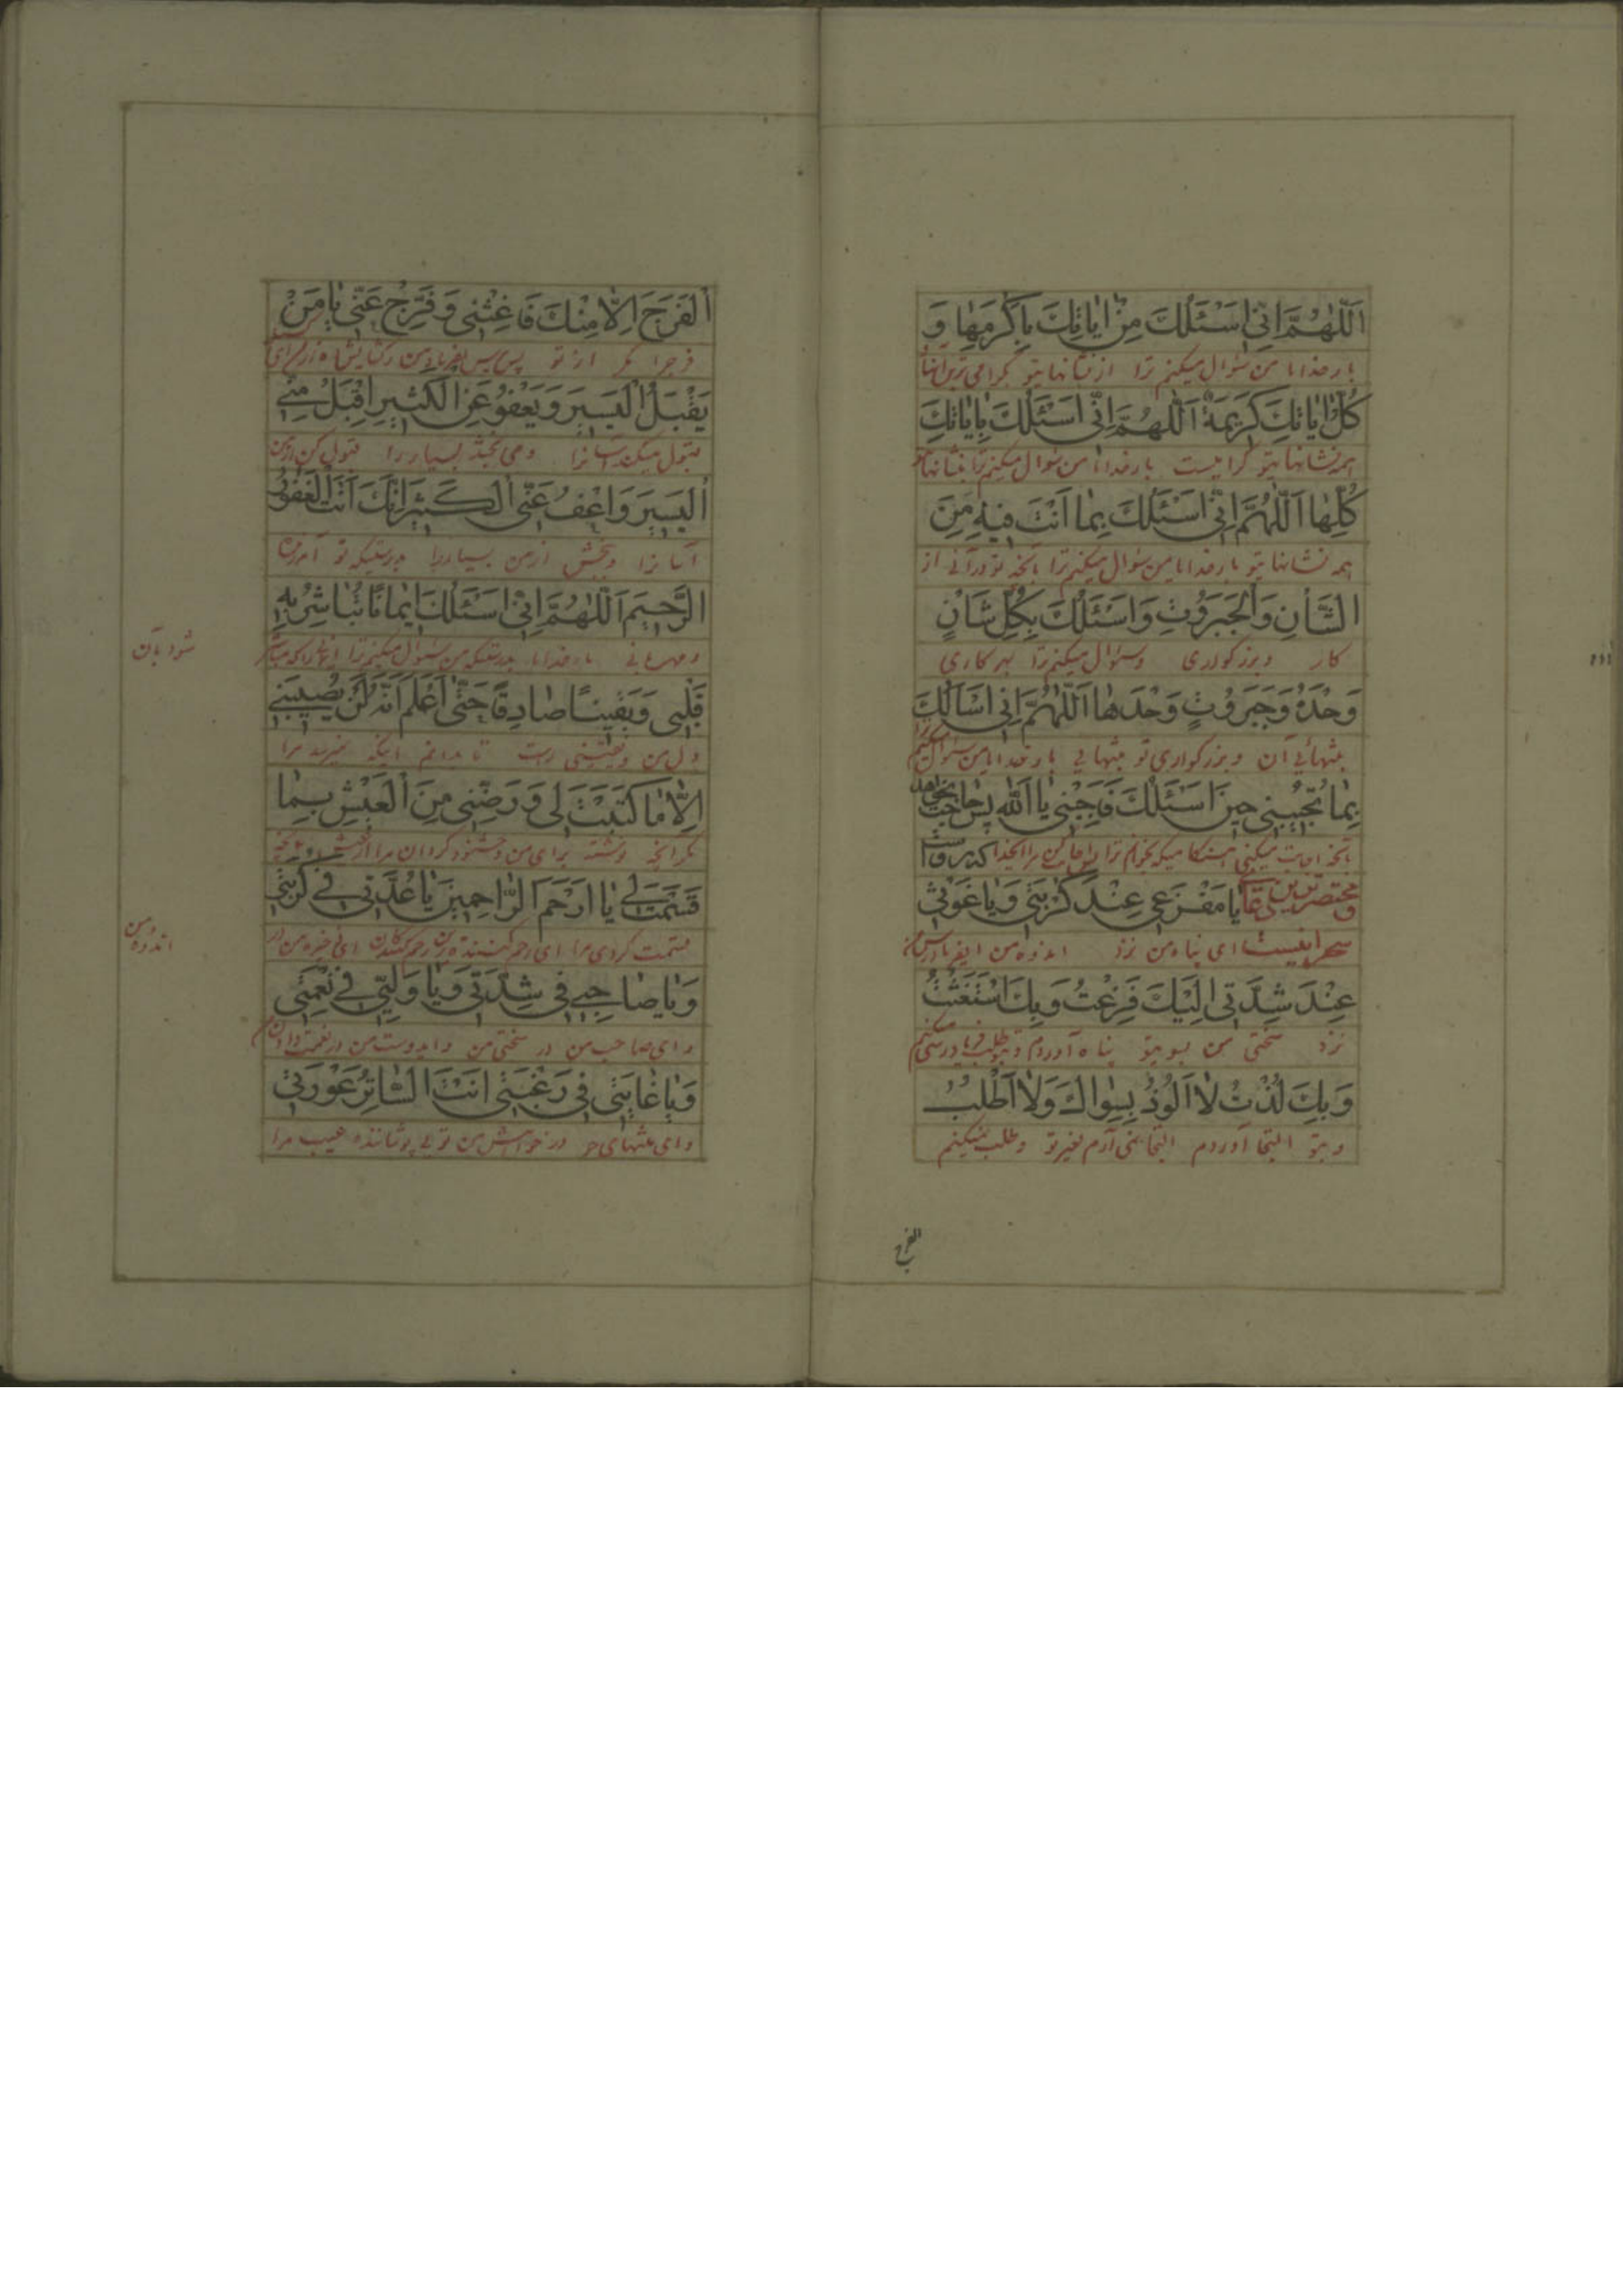 اَللّٰهُمَّ اِنّی اَسْئَلُكَ مِنْ اٰیاتِكَ بِاَكْرَمِهٰا وَ
بارخدایا من سؤال میکنم ترا از نشانهایتو گرامی ترین آنها
كُلُّ اٰیاتِكَ كَریمَةٌ اَللّٰهُمَّ اِنّی اَسْئَلُكَ بِاٰیاتِكَ
همه نشانهایتو گرامیست بارخدایا من سؤال میکنم ترا بنشانهایتو
كُلِّهٰا اَللّٰهُمَّ اِنّی اَسْئَلُكَ بِمٰا اَنْتَ فیهِ مِنَ
همه نشانهایتو بارخدایا من سؤال میکنم ترا بآنچه تو در آنی از
الشَّأنِ وَالْجَبَرُوتِ وَاَسْئَلُكَ بِكُلِّ شَأنٍ
کار وبزرکواری وسؤال میکنم ترا بهر کاری
وَحْدَهُ وَجَبَرُوتٍ وَحْدَهٰا اَللّٰهُمَّ اِنّی اَسْاَلُكَ
بتنهائی آن وبزرکواری تو بتنهایی بارخدایا من سؤال میکنم ترا
بِمٰا تُجیبُنی حینَ اَسْئَلُكَ فَاَجِبْنی یٰا اَللّٰه پس حاجت بخواهد
بآنچه اجابت میکنی هنگامیکه بخوانم ترا پس اجابت کن مرا ایخدا که برآورده است
ومختصرترین دعای یٰا مَفْزَعی عِنْدَ كُرْبَتی وَیٰا غَوْثی
سحر اینست ای پناه من نزد اندوه من ایفریادرس من
عِنْدَ شِدَّتی اِلَیْكَ فَزِعْتُ وَبِكَ اسْتَغَثْتُ
نزد سختی من بسویتو پناه آوردم وبتو طلب فریادرسی میکنم
وَبِكَ لُذْتُ لاٰ اَلُوذُ بِسِوٰاكَ وَلاٰ اَطْلُبُ
وبتو التجا آوردم التجا نمی آرم بغیر تو وطلب نمیکنم
الفرج
اَلْفَرَجَ اِلاّٰ مِنْكَ فَاَغِثْنی وَفَرِّجْ عَنّی یٰا مَنْ
فرجرا مگر از تو پس بفریاد من رس وکشایش ده از من ای
یَقْبَلُ الْیَسیرَ وَیَعْفُو عَنِ الْكَثیرِ اِقْبَلْ مِنِّی
قبول میکند آسانرا ومی بخشد بسیار را قبول کن از من
اَلْیَسیرَ وَاعْفُ عَنّی الْكَثیرَ اِنَّكَ اَنْتَ الْغَفُورُ
آسانرا وببخش از من بسیار را بدرستیکه تو آمرزنده
الرَّحیمُ اَللّٰهُمَّ اِنّی اَسْئَلُكَ ایمٰانًا تُبٰاشِرُ بِهِ
ومهربانی بارخدایا بدرستیکه من سؤال میکنم ترا ایمانی را که مباشر
شود بآن
قَلْبی وَیَقینًا صٰادِقًا حَتّٰی اَعْلَمَ اَنَّهُ لَنْ یُصیبَنی
دل من ویقینی راست تا بدانم اینکه نمیرسد مرا
اِلاّٰ مٰا كَتَبْتَ لی وَرَضِّنی مِنَ الْعَیْشِ بِمٰا
مگر آنچه نوشته برای من وخشنود گردان مرا از عیش بآنچه
قَسَمْتَ لی یٰا اَرْحَمَ الرّٰاحِمینَ یٰا عُدَّتی فی كُرْبَتی
قسمت کردی مرا ای رحم کننده ترین رحم کنندگان ای ذخیره من در
اندوه من
وَیٰا صٰاحِبی فی شِدَّتی وَیٰا وَلِیّی فی نِعْمَتی
وای صاحب من در سختی من وایدوست من در نعمت
وَیٰا غٰایَتی فی رَغْبَتی اَنْتَ السّٰاتِرُ عَوْرَتی
وای منتهای من در خواهش من تویی پوشاننده عیب مرا